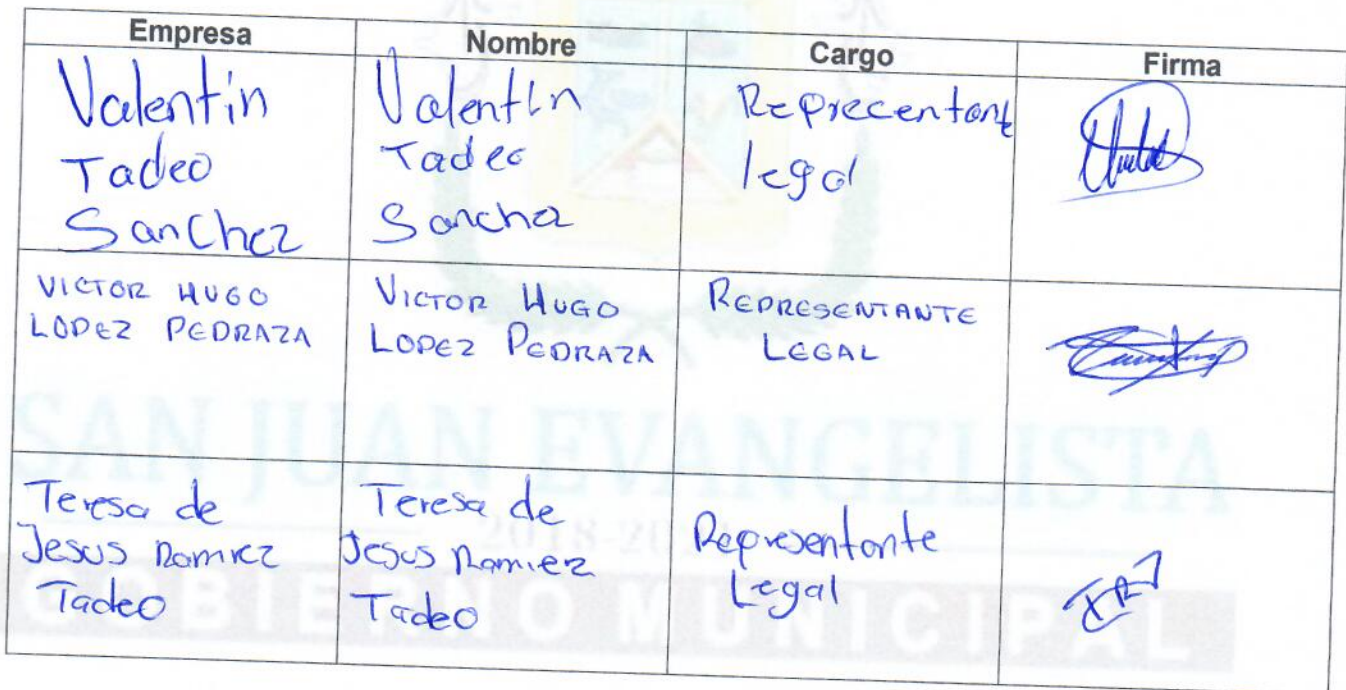 Empresa Nombre Cargo Firma
Valentin
Tadeo
Sanchez
Valentin
Tadeo
Sanchez
Reprecentante
legal
VICTOR HUGO
LOPEZ PEDRAZA
VICTOR HUGO
LOPEZ PEDRAZA
REPRESENTANTE
LEGAL
SAN JUAN EVANGELISTA
Teresa de
Jesus Ramirez
Tadeo
Teresa de
Jesus Ramirez
Tadeo
Representante
Legal
GOBIERNO MUNICIPAL